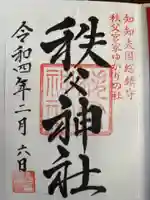 知知夫国総鎮守
秩父宮家ゆかりの社
秩父神社
令和四年二月六日